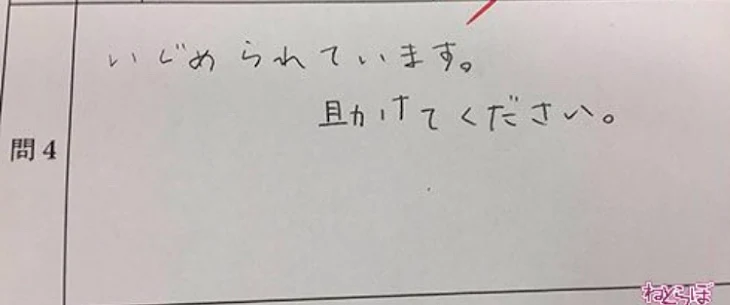 いじめられています。
助けてください。
問4
ねとらぼ